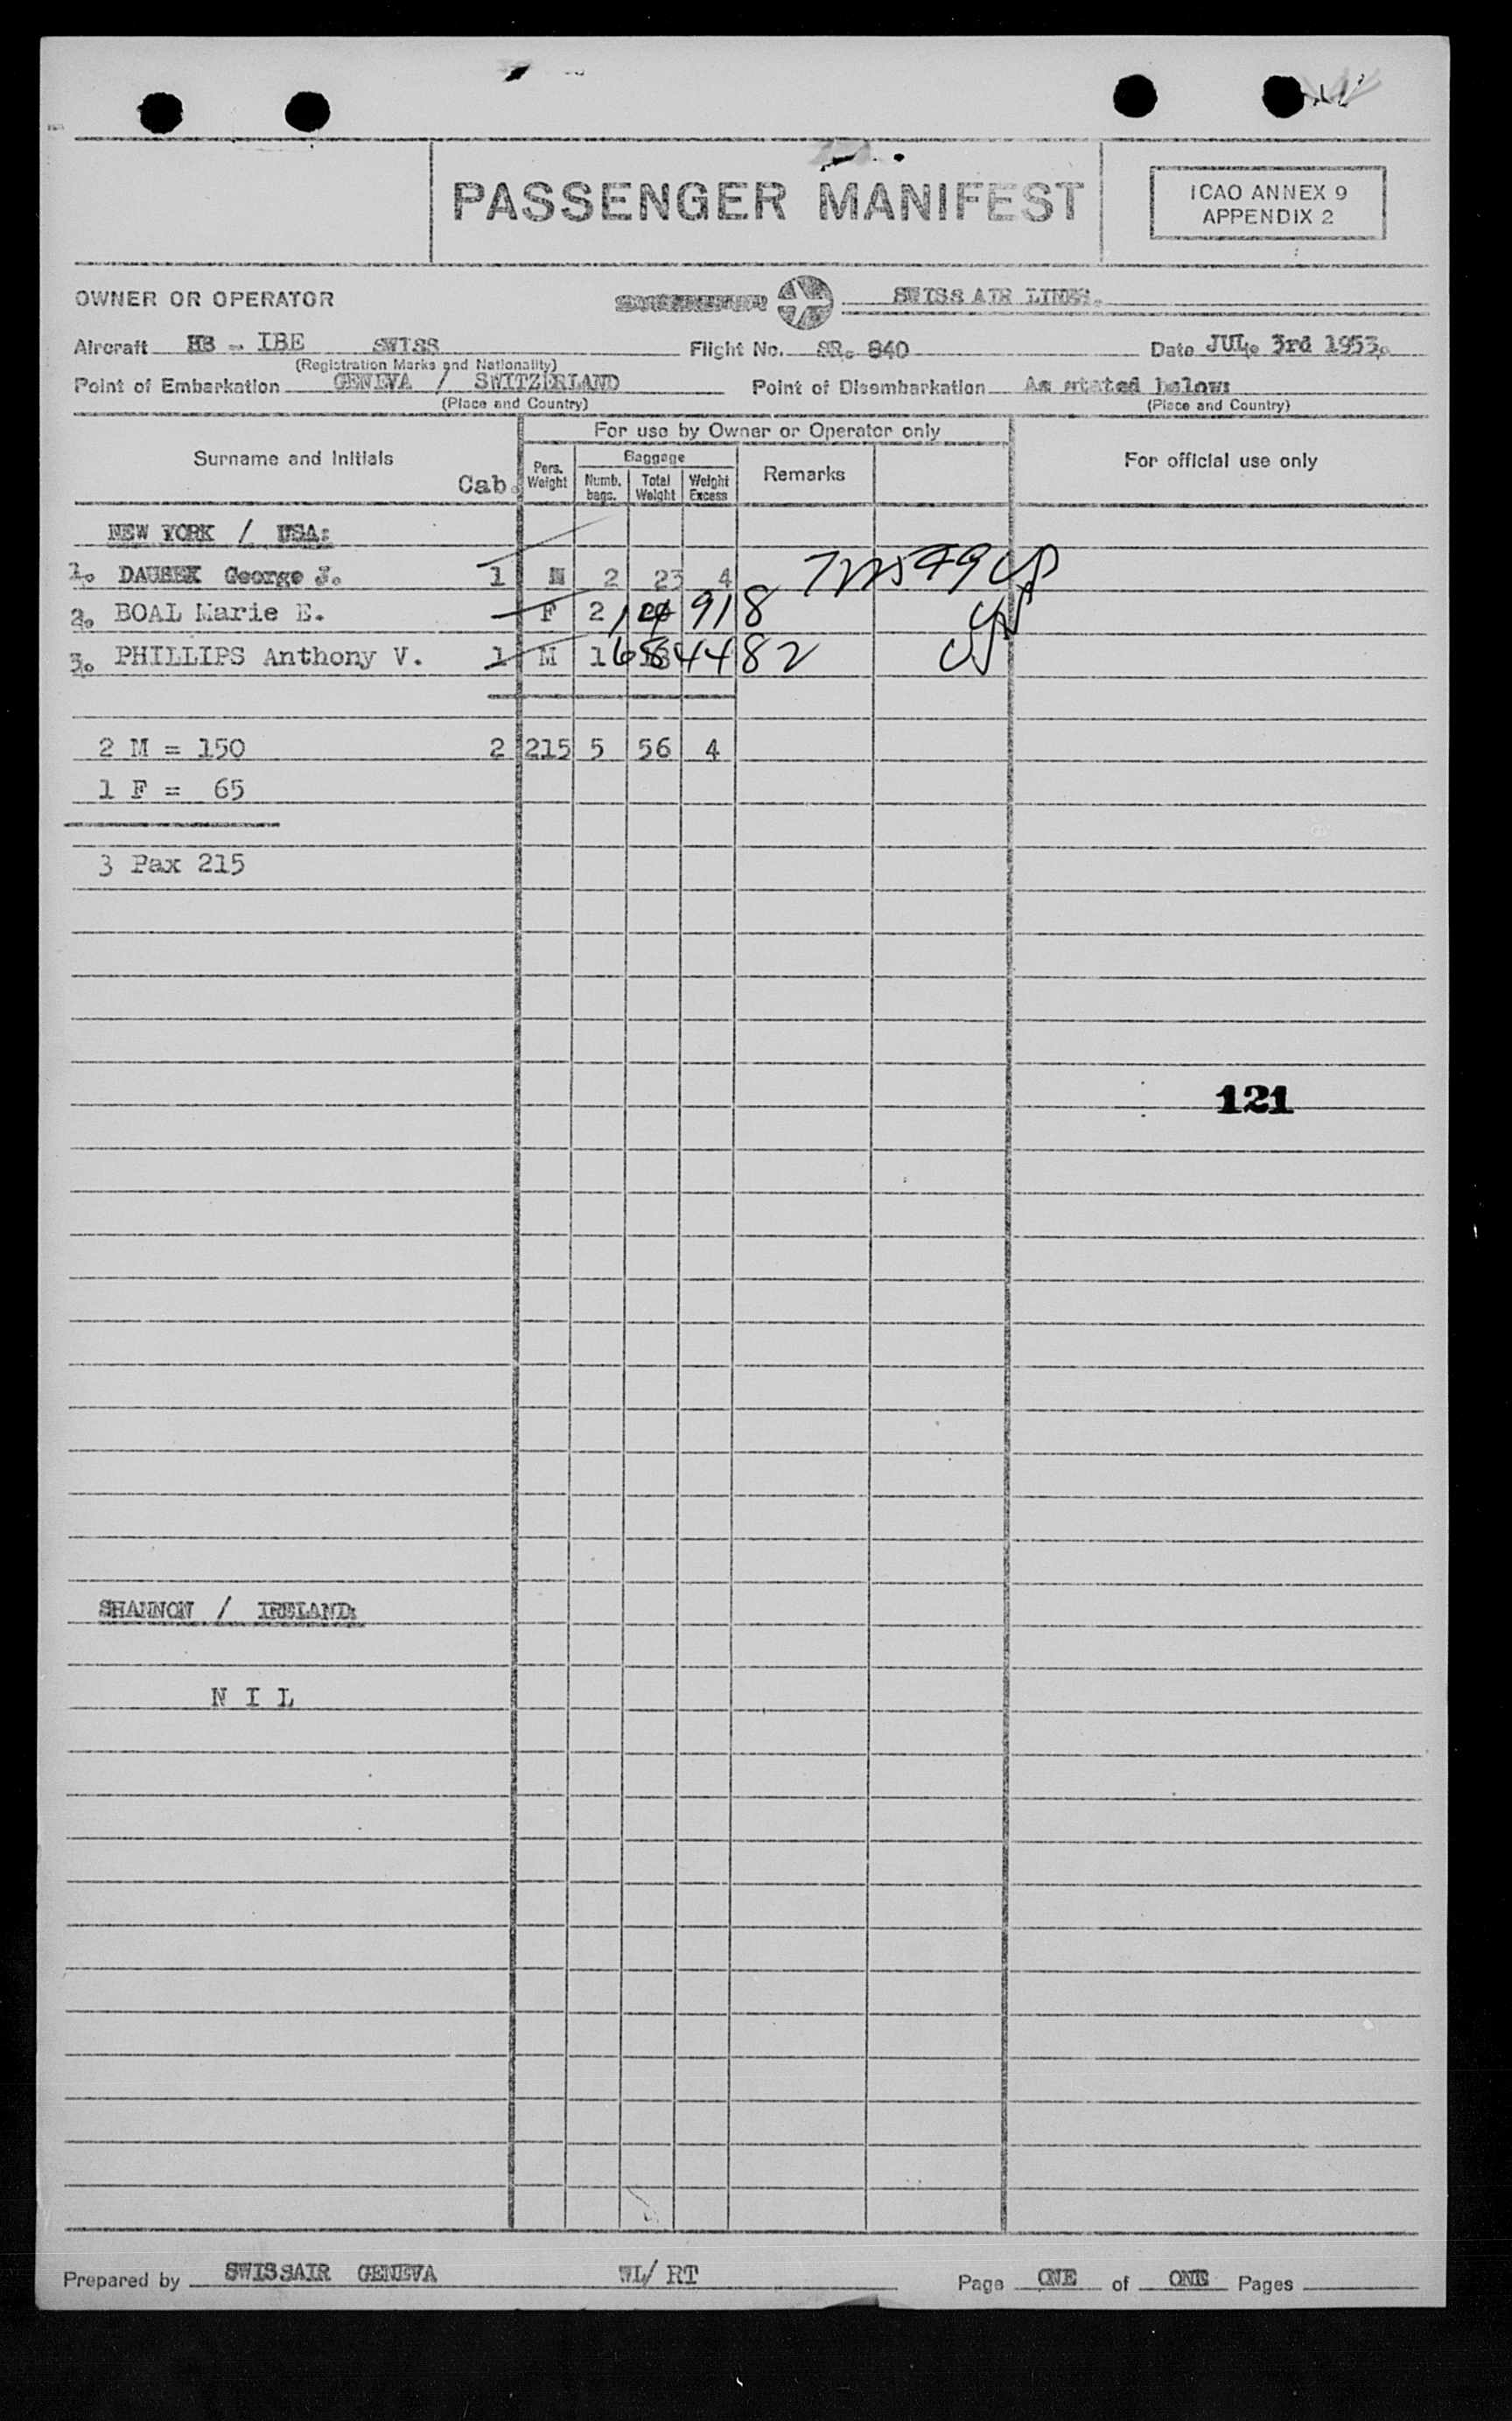 PASSENGER MANIFEST
ICAO ANNEX 9
APPENDIX 2
OWNER OR OPERATOR SWISS AIR LINES.
Aircraft HB - IBE SWISS Flight No. SR. 840 Date JUL. 3rd 1953.
(Registration Marks and Nationality)
Point of Embarkation GENEVA / SWITZERLAND Point of Disembarkation As stated below:
(Place and Country) (Place and Country)
For use by Owner or Operator only
Surname and Initials Cab. Pers. Weight Baggage Numb. bags. Total Weight Weight Excess Remarks For official use only
NEW YORK / USA:
1. George J. 1 M 2 23 4
2. BOAL Marie E. F 2 14918
3. PHILLIPS Anthony V. 1 M 1 684482
2 M = 150 2 215 5 56 4
1 F = 65
3 Pax 215
121
SHANNON / IRELAND:
N I L
Prepared by SWISSAIR GENEVA WL/ RT Page ONE of ONE Pages